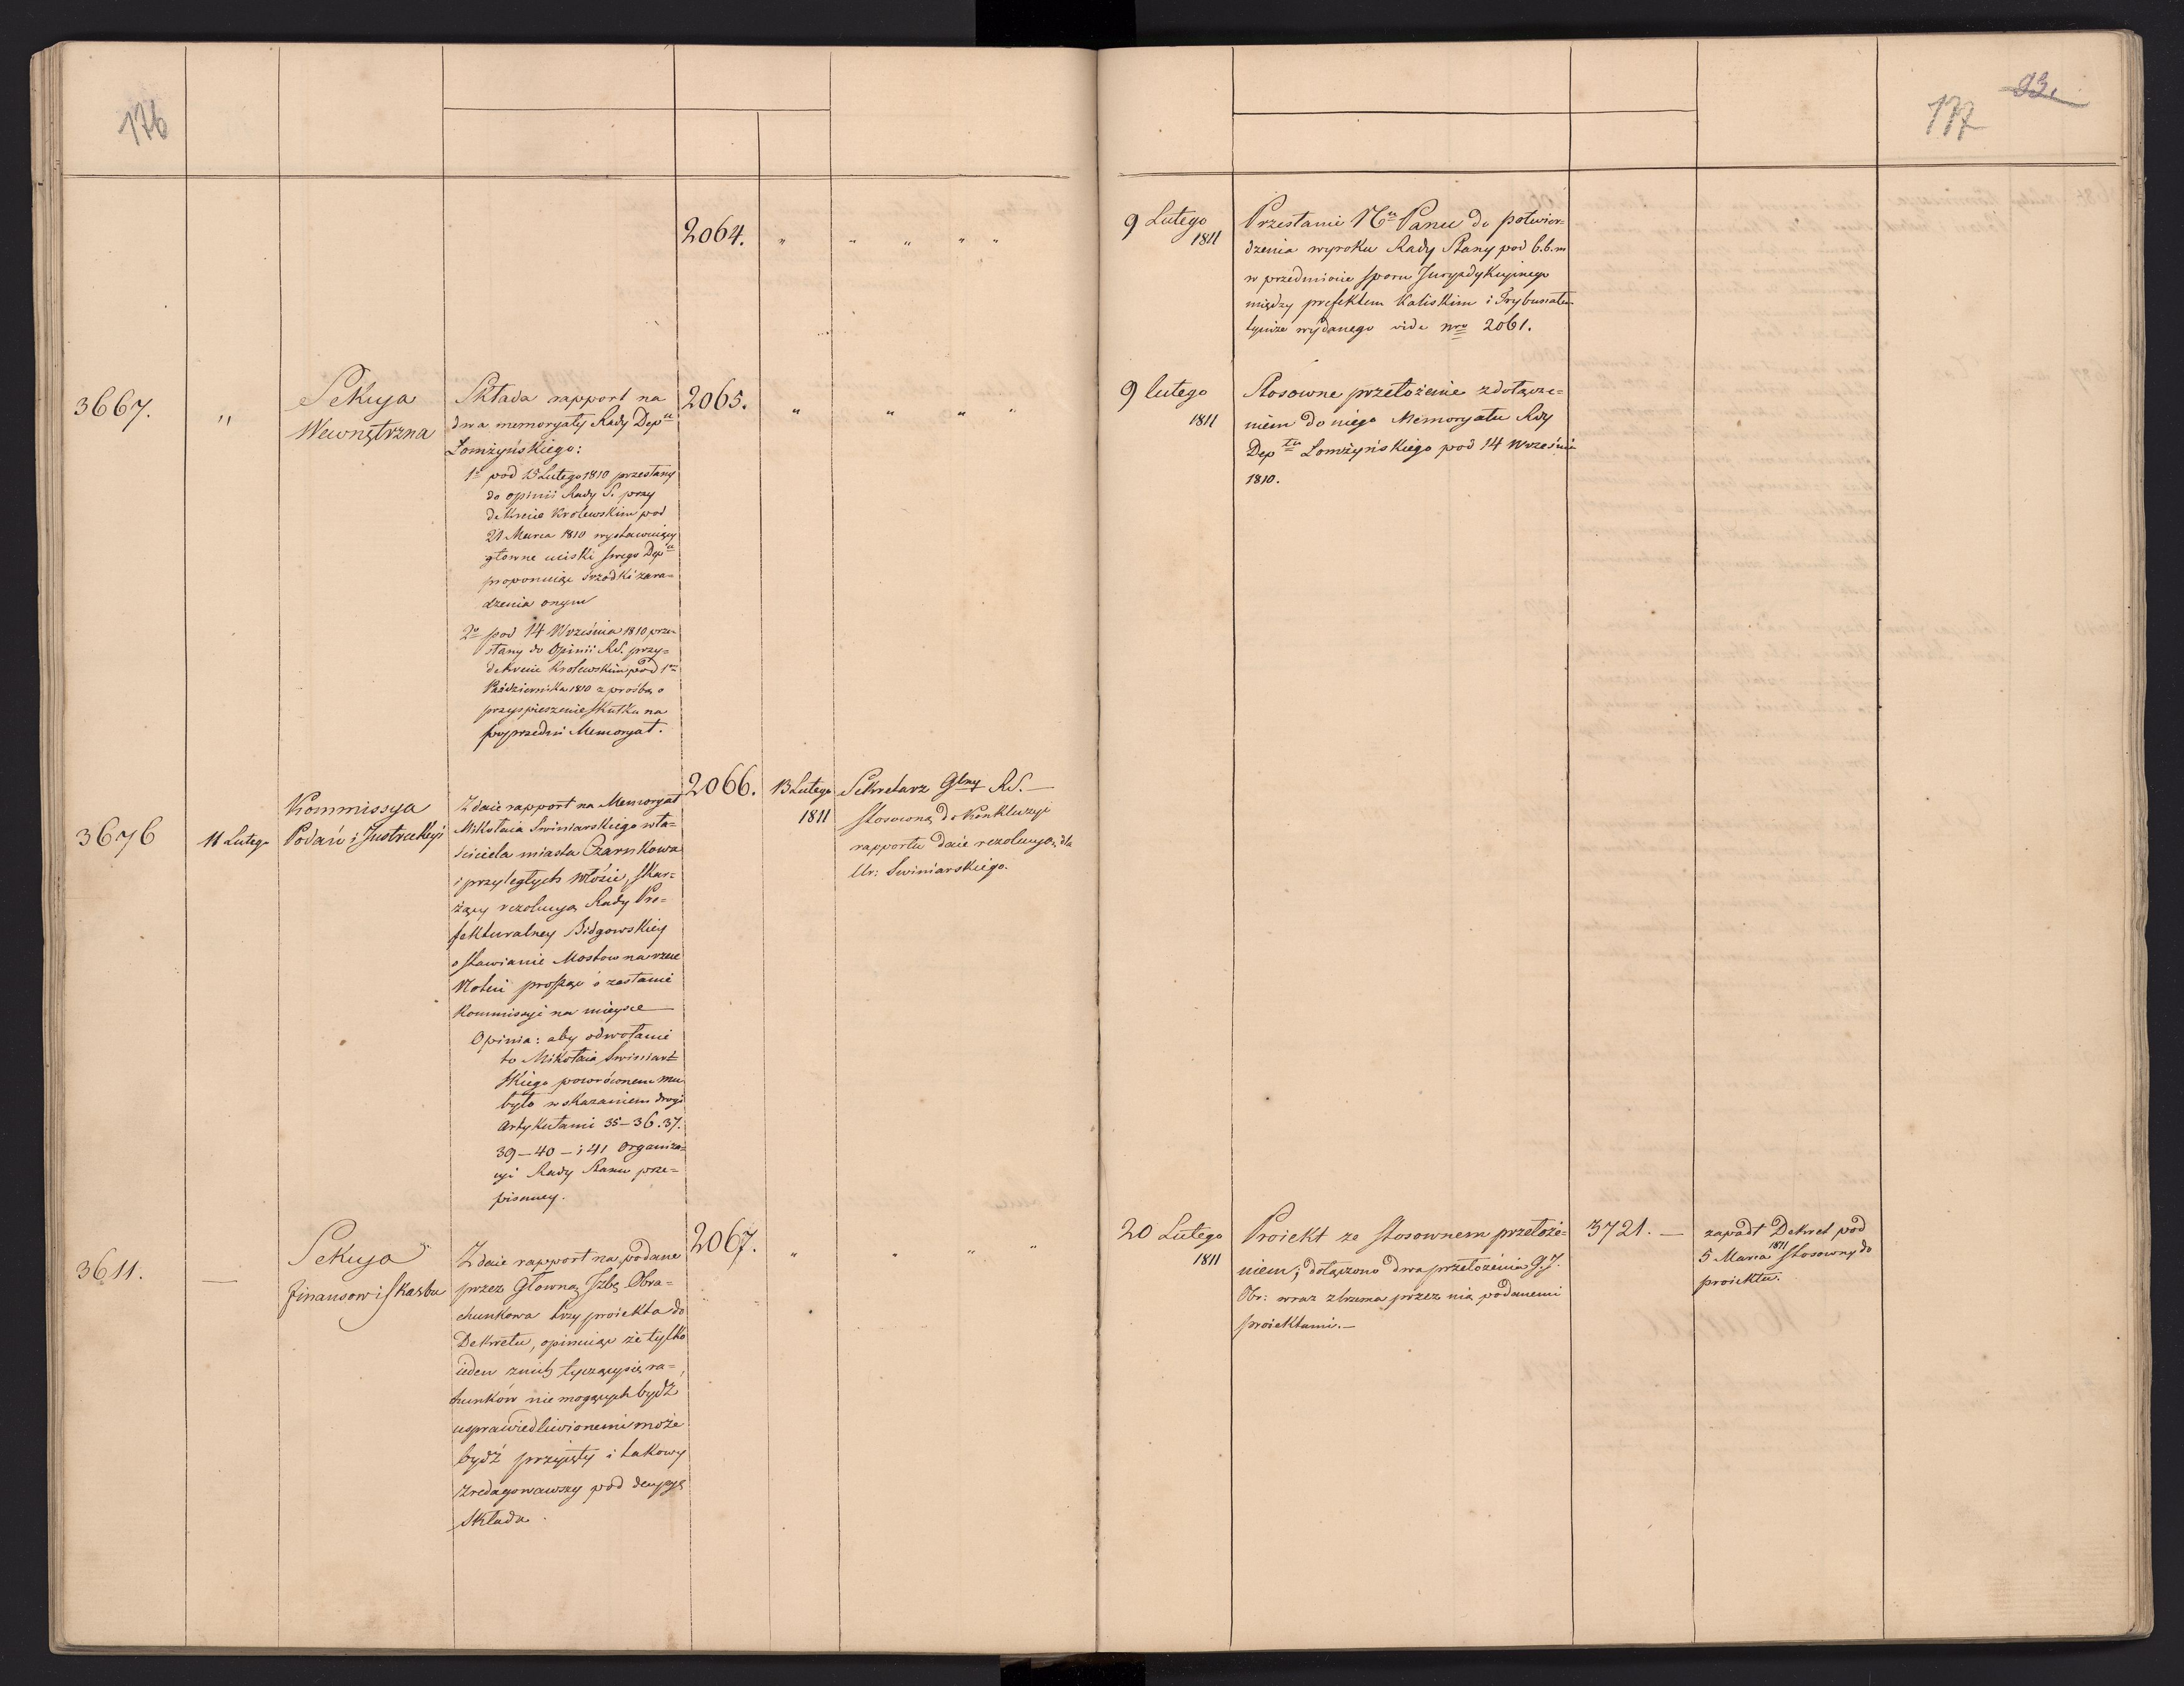 176
2064. " " " " "
3667. "
Sekcya
Wewnętrzna
Składa rapport na
dwa memoryały Rady Dep tu
Łomżyńskiego:
1o pod 15 Lutego 1810 przesłany
do opinii Rady S. przy
dekrecie Krolewskim pod
21 Marca 1810 wystawuiący
głowne uciski swego Dep tu
proponuiąc srzodki zara=
dzenia onym
2o pod 14 Września 1810 prze=
słany do Opinii R.S. przy=
dekrecie Krolewskim pod 1m
Października 1810 z prośbą o
przyspieszenie skutku na
poprzedni Memoryał.
2065. " " " "
3676
11 Lutego
Kommissya
Podań i Instrukcyi
Zdaie rapport na Memoryał
Mikołaia Swiniarskiego wła=
ściciela miasta Czarnkowa
i przyległych włości, skar=
żący rezolucyą Rady Pre=
fekturalney Bidgowskiey
o stawianie Mostow na rzece
Noteci prosząc o zesłanie
Kommissyi na mieysce
Opinia: aby odwołanie
to Mikołaia Swiniar=
skiego powróconem mu
było wskazaniem drogi
Artykułami 35–36.37.
39–40–i 41 Organiza=
cyi Rady Stanu prze=
pisaney.
2066.
13 Lutego
1811
Sekretarz Glny R.S.
Stosowną do Konkluzyi
rapportu daie rezolucyą dla
Ur: Swiniarskiego.
3611. —
Sekcya
finansow i skarbu
Zdaie rapport na podane
przez Głowną Jzbę Obra=
chunkową trzy proiekta do
Dekretu, opiniuiąc że tylko
ieden z nich tyczący się ra=
chunków nie mogących bydź
usprawiedliwionemi może
bydź przyięty i takowy
zredagowawszy pod decyzyę
składa.
2067. " " " "
93.
177
9 Lutego
1811
Przesłanie N. Panu do potwier=
dzenia wyroku Rady Stanu pod b.b.m
w przedmiocie sporu Juryzdykcyinego
między prefektem Kaliskim i Trybunałem
tymże wydanego vide nro 2061.
9 lutego
1811
Stosowne przełożenie z dołącze=
niem do niego Memoryału Rdy
Dep tu Łomżyńskiego pod 14 Września
1810.
20 Lutego
1811
Proiekt ze stosownem przełoże=
niem; dołączono dwa przełożenia G.J.
Obr: wraz z trzema przez nią podanemi
proiektami.—
3721. —
zapadł Dekret pod
5 Marca 1811 stosowny do
proiektu.